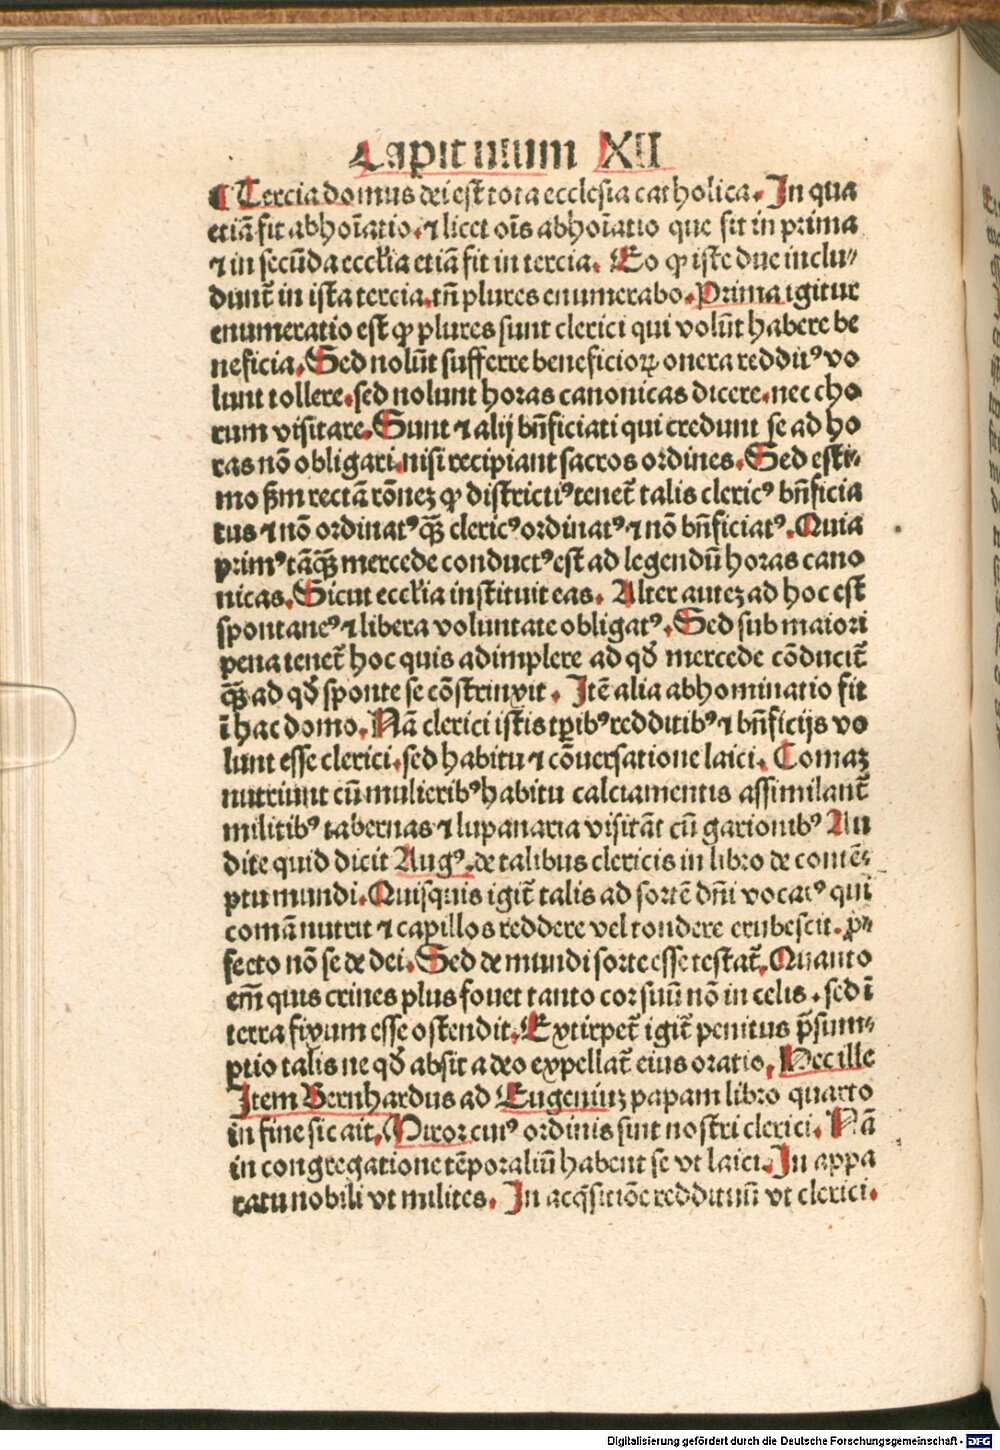 Capitulum XII
¶ Tercia domus dei est tota ecclesia catholica. In qua
etiā fit abhoīatio. ⁊ licet oīs abhoīatio que fit in prima
⁊ in secūda eccłia etiā fit in tercia. Eo ꝙ iste due inclu⸗
dunt̄ in ista tercia. tñ plures enumerabo. Prima igitur
enumeratio est ꝙ plures sunt clerici qui volūt habere be
neficia. Sed nolūt sufferre beneficioꝝ onera reddit⁹ vo
lunt tollere. sed nolunt horas canonicas dicere. nec cho
rum visitare. Sunt ⁊ alij bñficiati qui credunt se ad ho
ras nō obligari. nisi recipiant sacros ordines. Sed esti⸗
mo ẜm rectā rōnez ꝙ districti⁹ tenet̄ talis cleric⁹ bñficia
tus ⁊ nō ordinat⁹ qȝ̄ cleric⁹ ordinat⁹ ⁊ nō bñficiat⁹. Quia
prim⁹ tāqȝ̄ mercede conduct⁹ est ad legendū horas cano
nicas. Sicut eccłia instituit eas. Alter autez ad hoc est
spontane⁹ ⁊ libera voluntate obligat⁹. Sed sub maiori
pena tenet̄ hoc quis adimplere ad qđ mercede cōducit̄
qȝ̄ ad qđ sponte se cōstrinxit. Itē alia abhominatio fit
ī hac domo. Nā clerici istis tꝑib⁹ redditib⁹ ⁊ bñficijs vo
lunt esse clerici. sed habitu ⁊ cōuersatione laici. Comaz
nutriunt cū mulierib⁹ habitu calciamentis assimilant̄
militib⁹ tabernas ⁊ lupanaria visitāt cū garionib⁹ Au
dite quid dicit Aug⁹. de talibus clericis in libro de contē⸗
ptu mundi. Quisquis igit̄ talis ad sortē dñi vocat⁹ qui
comā nutrit ⁊ capillos reddere vel tondere erubescit. ꝓ⸗
fecto nō se de dei. Sed de mundi sorte esse testat̄. Quanto
em̄ quis crines plus fouet tanto cor suū nō in celis. sed ī
terra fixum esse ostendit. Extirpet̄ igit̄ penitus p̄sum⸗
ptio talis ne qđ absit a deo expellat̄ eius oratio. Hec ille
Item Bernhardus ad Eugeniuz papam libro quarto
in fine sic ait. Miror cui⁹ ordinis sint nostri clerici. Nā
in congregatione tēporaliū habent se vt laici. In appa
ratu nobili vt milites. In acq̄sitiōe reddituū vt clerici.
Digitalisierung gefördert durch die Deutsche Forschungsgemeinschaft - DFG